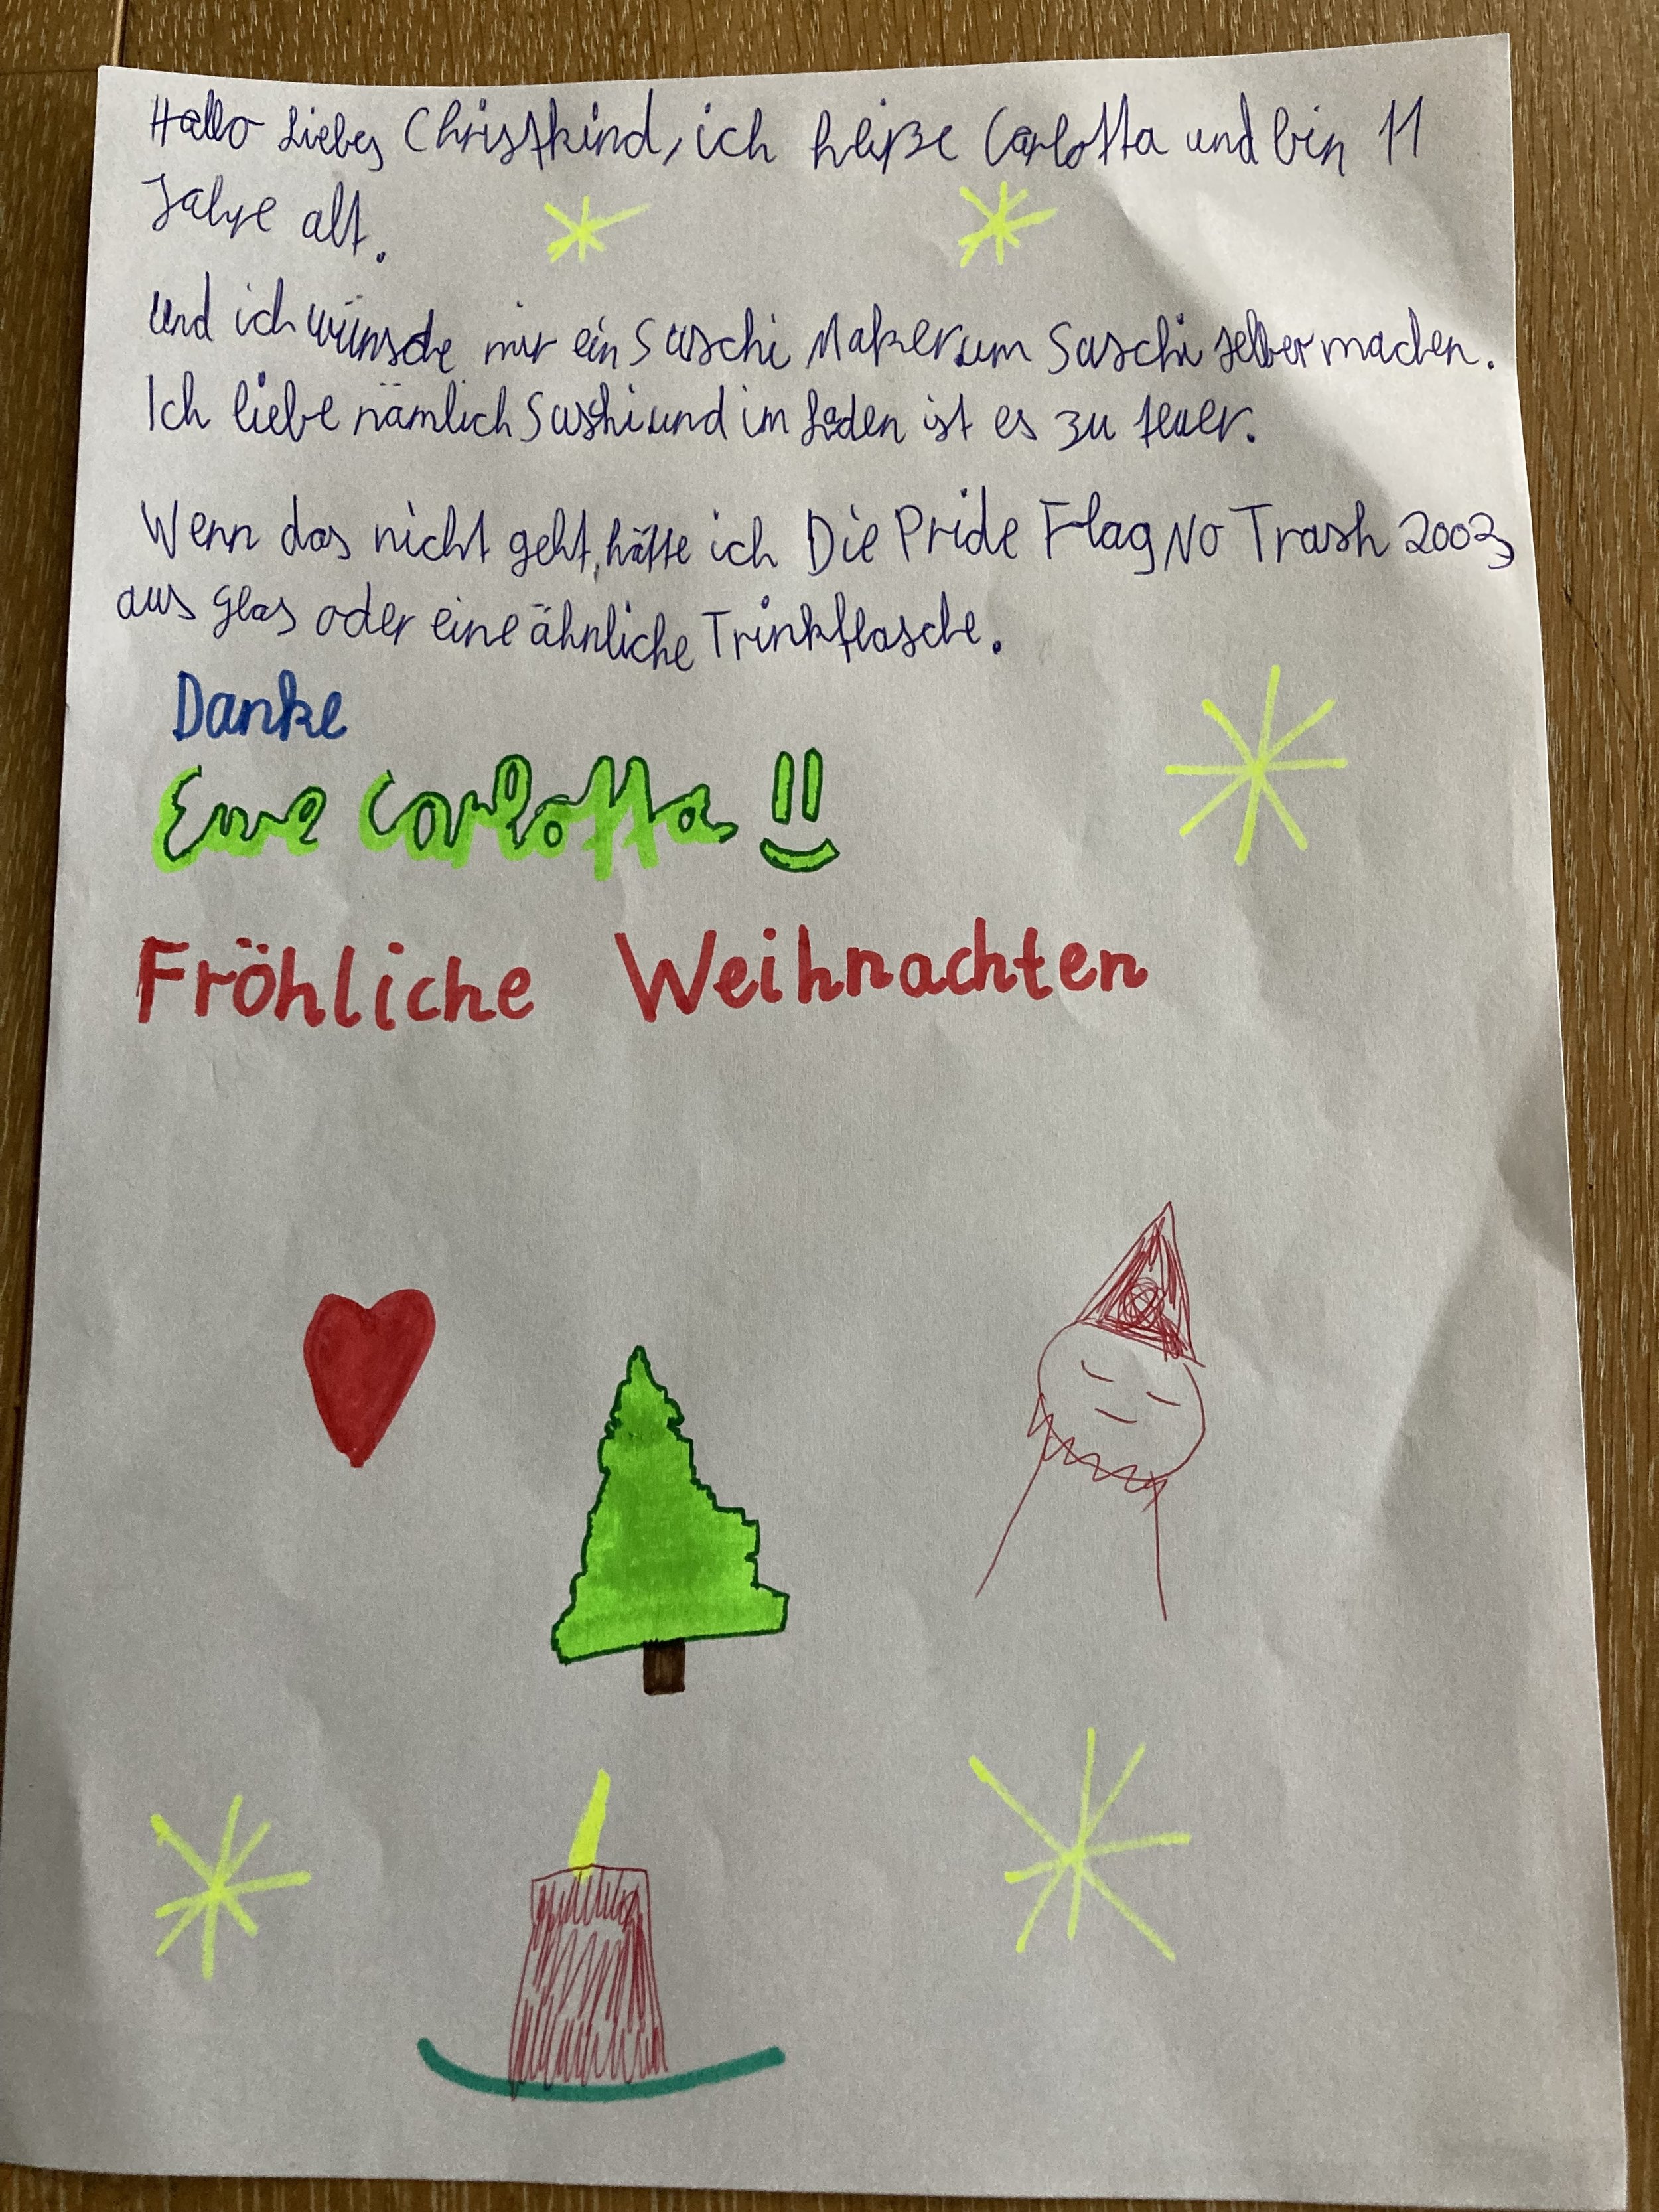 Hallo Liebes Christkind, ich heiße Carlotta und bin 11
Jahre alt.
und ich wünsche mir ein Suschi Maker um Suschi selber machen.
Ich liebe nämlich Sushi und im Laden ist es zu teuer.
Wenn das nicht geht, hätte ich Die Pride Flag No Trash 2003
aus glas oder eine ähnliche Trinkflasche.
Danke
Eure Carlotta !!
Fröhliche Weihnachten